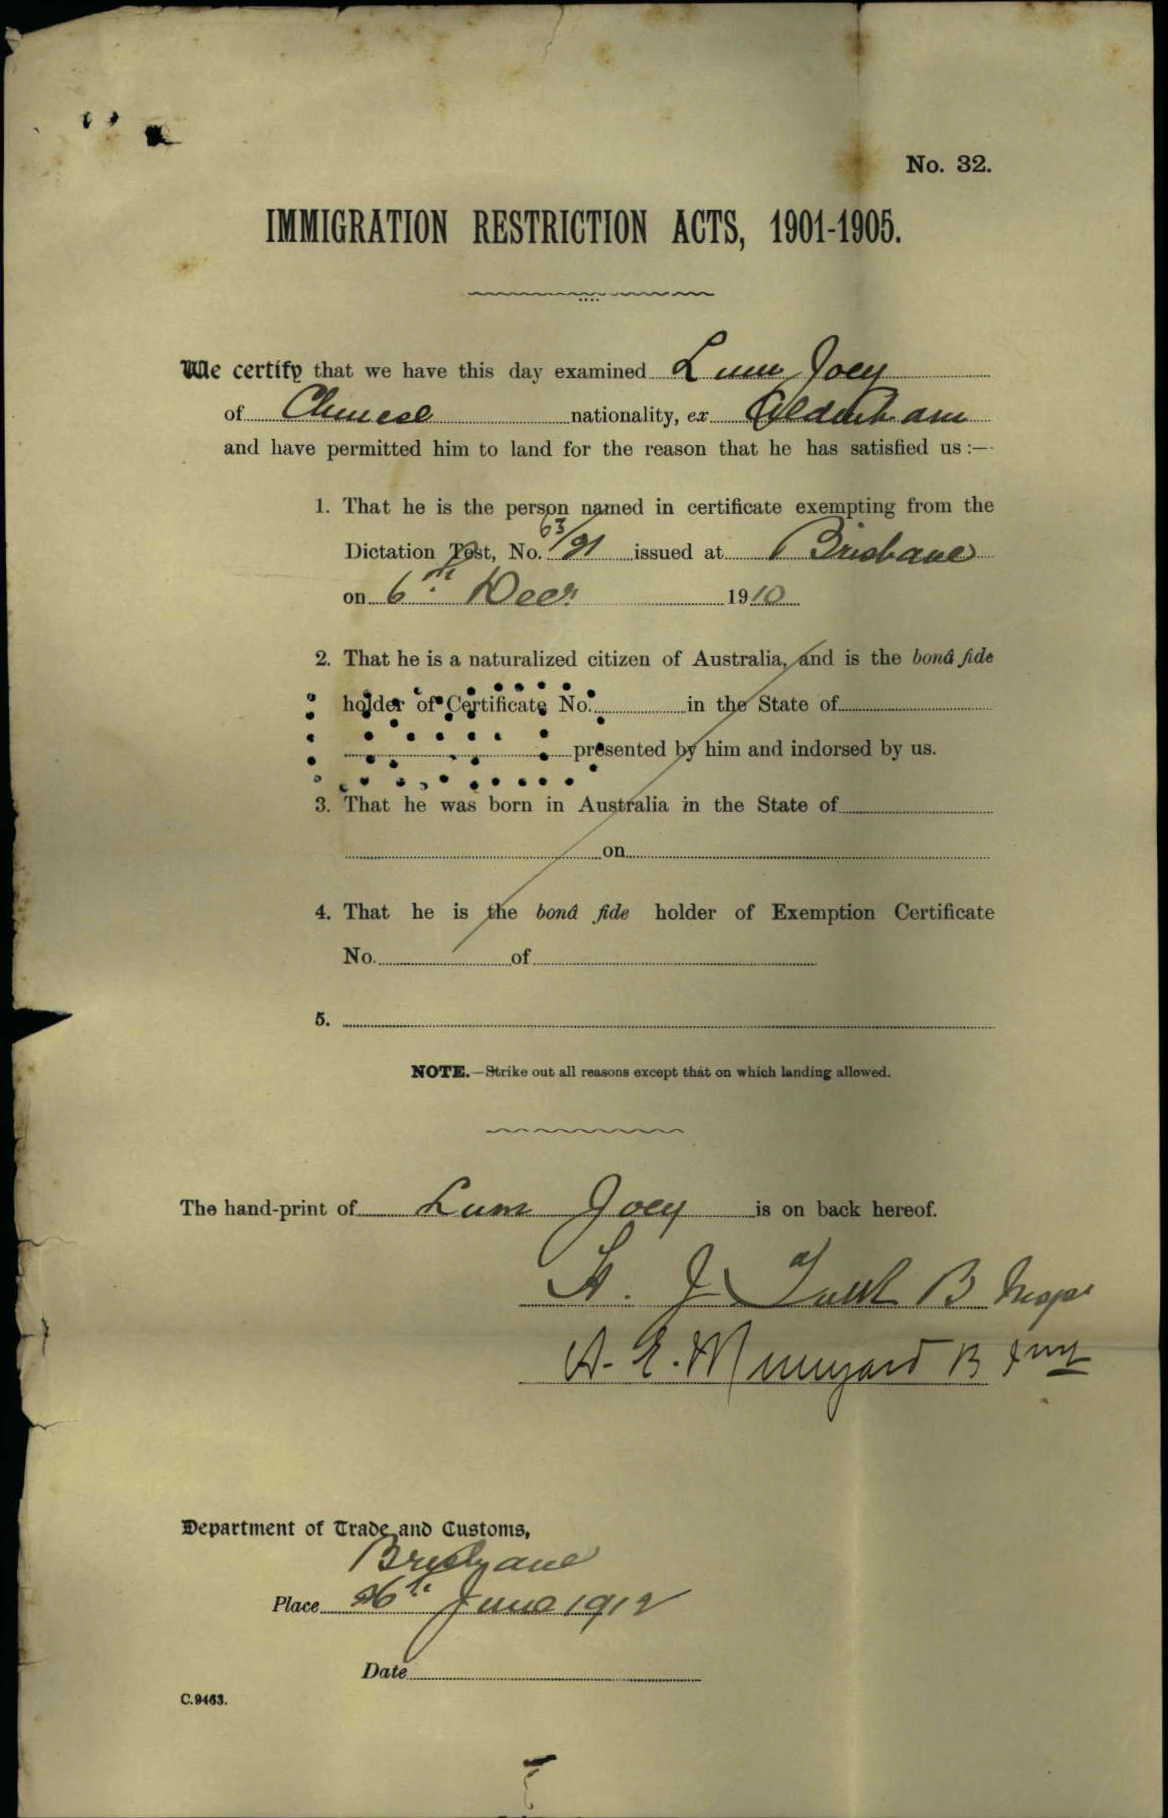 No. 32.
IMMIGRATION RESTRICTION ACTS, 1901-1905.
We certify that we have this day examined Lum Joey
of Chinese nationality, ex Aldenham
and have permitted him to land for the reason that he has satisfied us :—
1. That he is the person named in certificate exempting from the
Dictation Test, No. 63/91 issued at Brisbane
on 6th Decr. 1910
2. That he is a naturalized citizen of Australia, and is the bonâ fide
holder of Certificate No. in the State of
presented by him and indorsed by us.
3. That he was born in Australia in the State of
on
4. That he is the bonâ fide holder of Exemption Certificate
No. of
5.
NOTE.—Strike out all reasons except that on which landing allowed.
The hand-print of Lum Joey is on back hereof.
H. J. B
A. E. Munyard B
Department of Trade and Customs,
Brisbane
Place 26th June 1912
Date
C.9463.